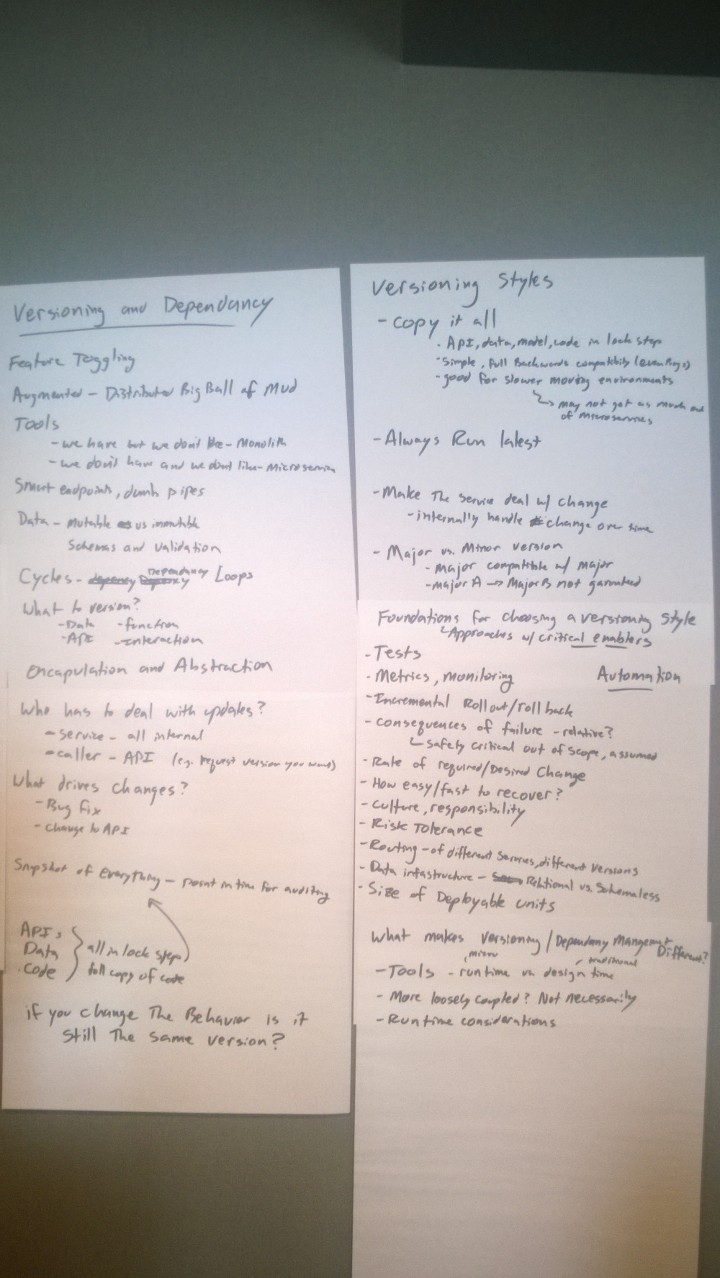 Versioning and Dependancy
Feature Toggling
Augmented - Distributed Big Ball of Mud
Tools
- we have but we don't like - Monolith
- we don't have and we dont like - Microservice
Smart endpoints, dumb pipes
Data - Mutable vs immutable
Schemas and validation
Cycles - Dependancy Loops
What to version?
- Data - function
- API - Interaction
Encapulation and Abstraction
Who has to deal with updates?
- service - all internal
- caller - API (e.g. request version you want)
What drives changes?
- Bug fix
- change to API
Snapshot of Everything - point in time for auditing
API
Data
Code
all in lock step
full copy of code
if you change The Behavior is it
still The same version?
Versioning Styles
- Copy it all
- API, data, model, code in lock step
- Simple, full Backwards compatibility
- good for slower moving environments
may not get as much out
of microservices
- Always Run latest
- Make The Service deal w/ change
- internally handle change over time
- Major vs. Minor version
- major compatible w/ major
- major A → Major B not garunteed
Foundations for choosing a versioning Style
Approaches w/ critical enablers
- Tests
- Metrics, monitoring
Automation
- Incremental Rollout/roll back
- consequences of failure - relative?
safety critical out of scope, assumed
- Rate of required/Desired Change
- How easy/fast to recover?
- Culture, responsibility
- Risk Tolerance
- Routing - of different Services, different versions
- Data infastructure - Relational vs. Schemaless
- Size of Deployable units
What makes versioning/Dependany Mangemnt Different?
micro
traditional
- Tools - runtime vs. design time
- More loosely coupled? Not necessarily
- Runtime considerations